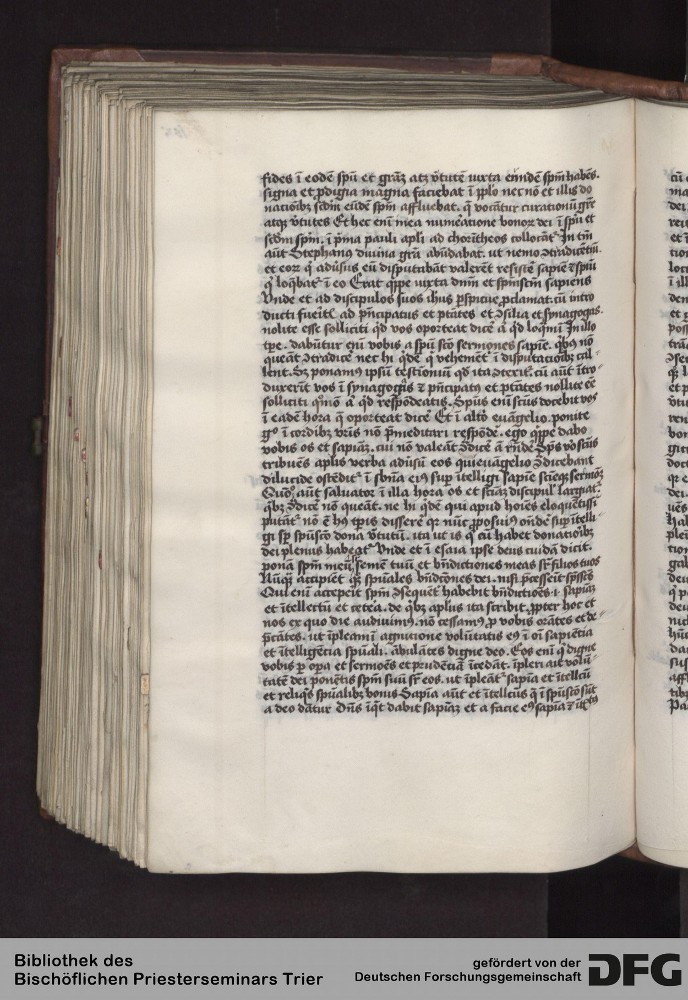 fides ī eodē spū et grāz atz v̄tutē iuxta eūndē spm̄ habēs.
signa et ꝓdigia magna faciebat ī pplo nec nō et illis do
natiōibz scdm̄ eūdē spm̄ affluebat. q̄ vocātur curationū grē
atqz v̄tutes Et hec enī mea numeatione bonor dei ī spū et
scdm̄ spm̄. ī p̄ma pauli apli ad chorītheos collocāt᷑ In tm̄
aūt Stephanus diuina grā abūdabat. ut nemo ꝯtradicētiū.
et eor q̄ adūsus eū disputabāt valerēt resistē sapiē ⁊ spūi
q̇ loq̄bat᷑ ī eo Erat q̄ppe iuxta dnm̄ et spm̄ scm̄ sapiens
Vnde et ad discipulos suos ihus ꝑspicue ꝓclamat. cū intro
ducti fueītꝭ ad p̄ncipatus et ptātes et ꝯsilia et synagogas.
nolite esse solliciti q̇d vos oporteat dicē a q̇d loqmī In illo
tpe. dabūtur enī vobis a spū scō sermones sapiē. q̇bus nō
queāt ꝯtradicē nec hi q̇dē q̇ vehemēt᷑ ī disputatiōibz cal-
lent. Sz ponamus ipsū testiōniū qd ita ꝯtexit. cū aūt ītro-
duxerūt vos ī synagogas ⁊ p̄ncipatus et ptātes nollite eē
solliciti quō a q̇d respōdeatis. Spūs enī scūs docebit vos
ī eadē hora q̄ oporteat dicē Et ī alto euāgelio. ponite
gº ī cordibz vrīs nō p̄meditari respōdē. ego q̄ppe dabo
vobis os et sapiāz. cui nō valeāt ꝯdicē a rn̄dē Sps vº scūs
tribuēs aplis verba adūsū eos qui euāgelio ꝯdicebant
dilucide ostēdit᷑ ī sbn̄a eius sup ītelligi sapiē scieqz sermōz
Quō aūt saluator ī illa hora os et sciāz discipulis largiat᷑.
q̄bz ꝯdicē nō queāt. ne hi q̇dē qui apud hoīes eloquētissi
putāt᷑ nō ē hus tpis disserē qr nūc ꝓposui ondē sup ītelli-
gi sp spūscō dona v̄tutū. ita ut is q̇ eū habet donatiōibz
dei plenus habeat᷑ Vnde et ī esaia ipse deus cuidā dicit.
ponā spm̄ meū sr semē tuū et bn̄dictiones meas sr filios tuos
Nūqz accipiet qs spūales bn̄dcōnes dei. nisi p̄cesseīt spsscs
Qui enī acceperit spm̄ ꝯsequet᷑ habebit bn̄dictiōes .i. sapiāz
et ītellectū et cetea. de q̄bz aplus ita scribit. ꝓpter hoc et
nos ex quo die audiuimus. nō cessamus ꝓ vobis orātes et de-
p̄cātes. ut īpleami ī agnitione volūtatis eius ī oī sapiētia
et ītelligētia spūali. ābulātes digne deo. Eos enī q̇ digne
vobis ꝑ opa et sermoēs et prudētiā īcedāt. īpleri ait volū-
tatē dei ponētis spm̄ suū sr eos. ut īpleāt᷑ sapia et ītellcū
et reliqs spūalibz bonis Sapia aūt et ītellcūs q̇ ī spūscō sūt
a deo dātur Dn̄s īq̇t dabit sapiaz et a facie eius sapia ⁊ ītts
Bibliothek des
Bischöflichen Priesterseminars Trier
gefördert von der
Deutschen Forschungsgemeinschaft
DFG